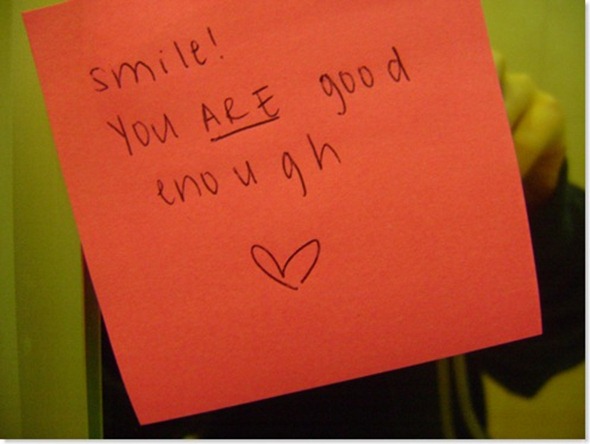 smile!
You ARE good
enough